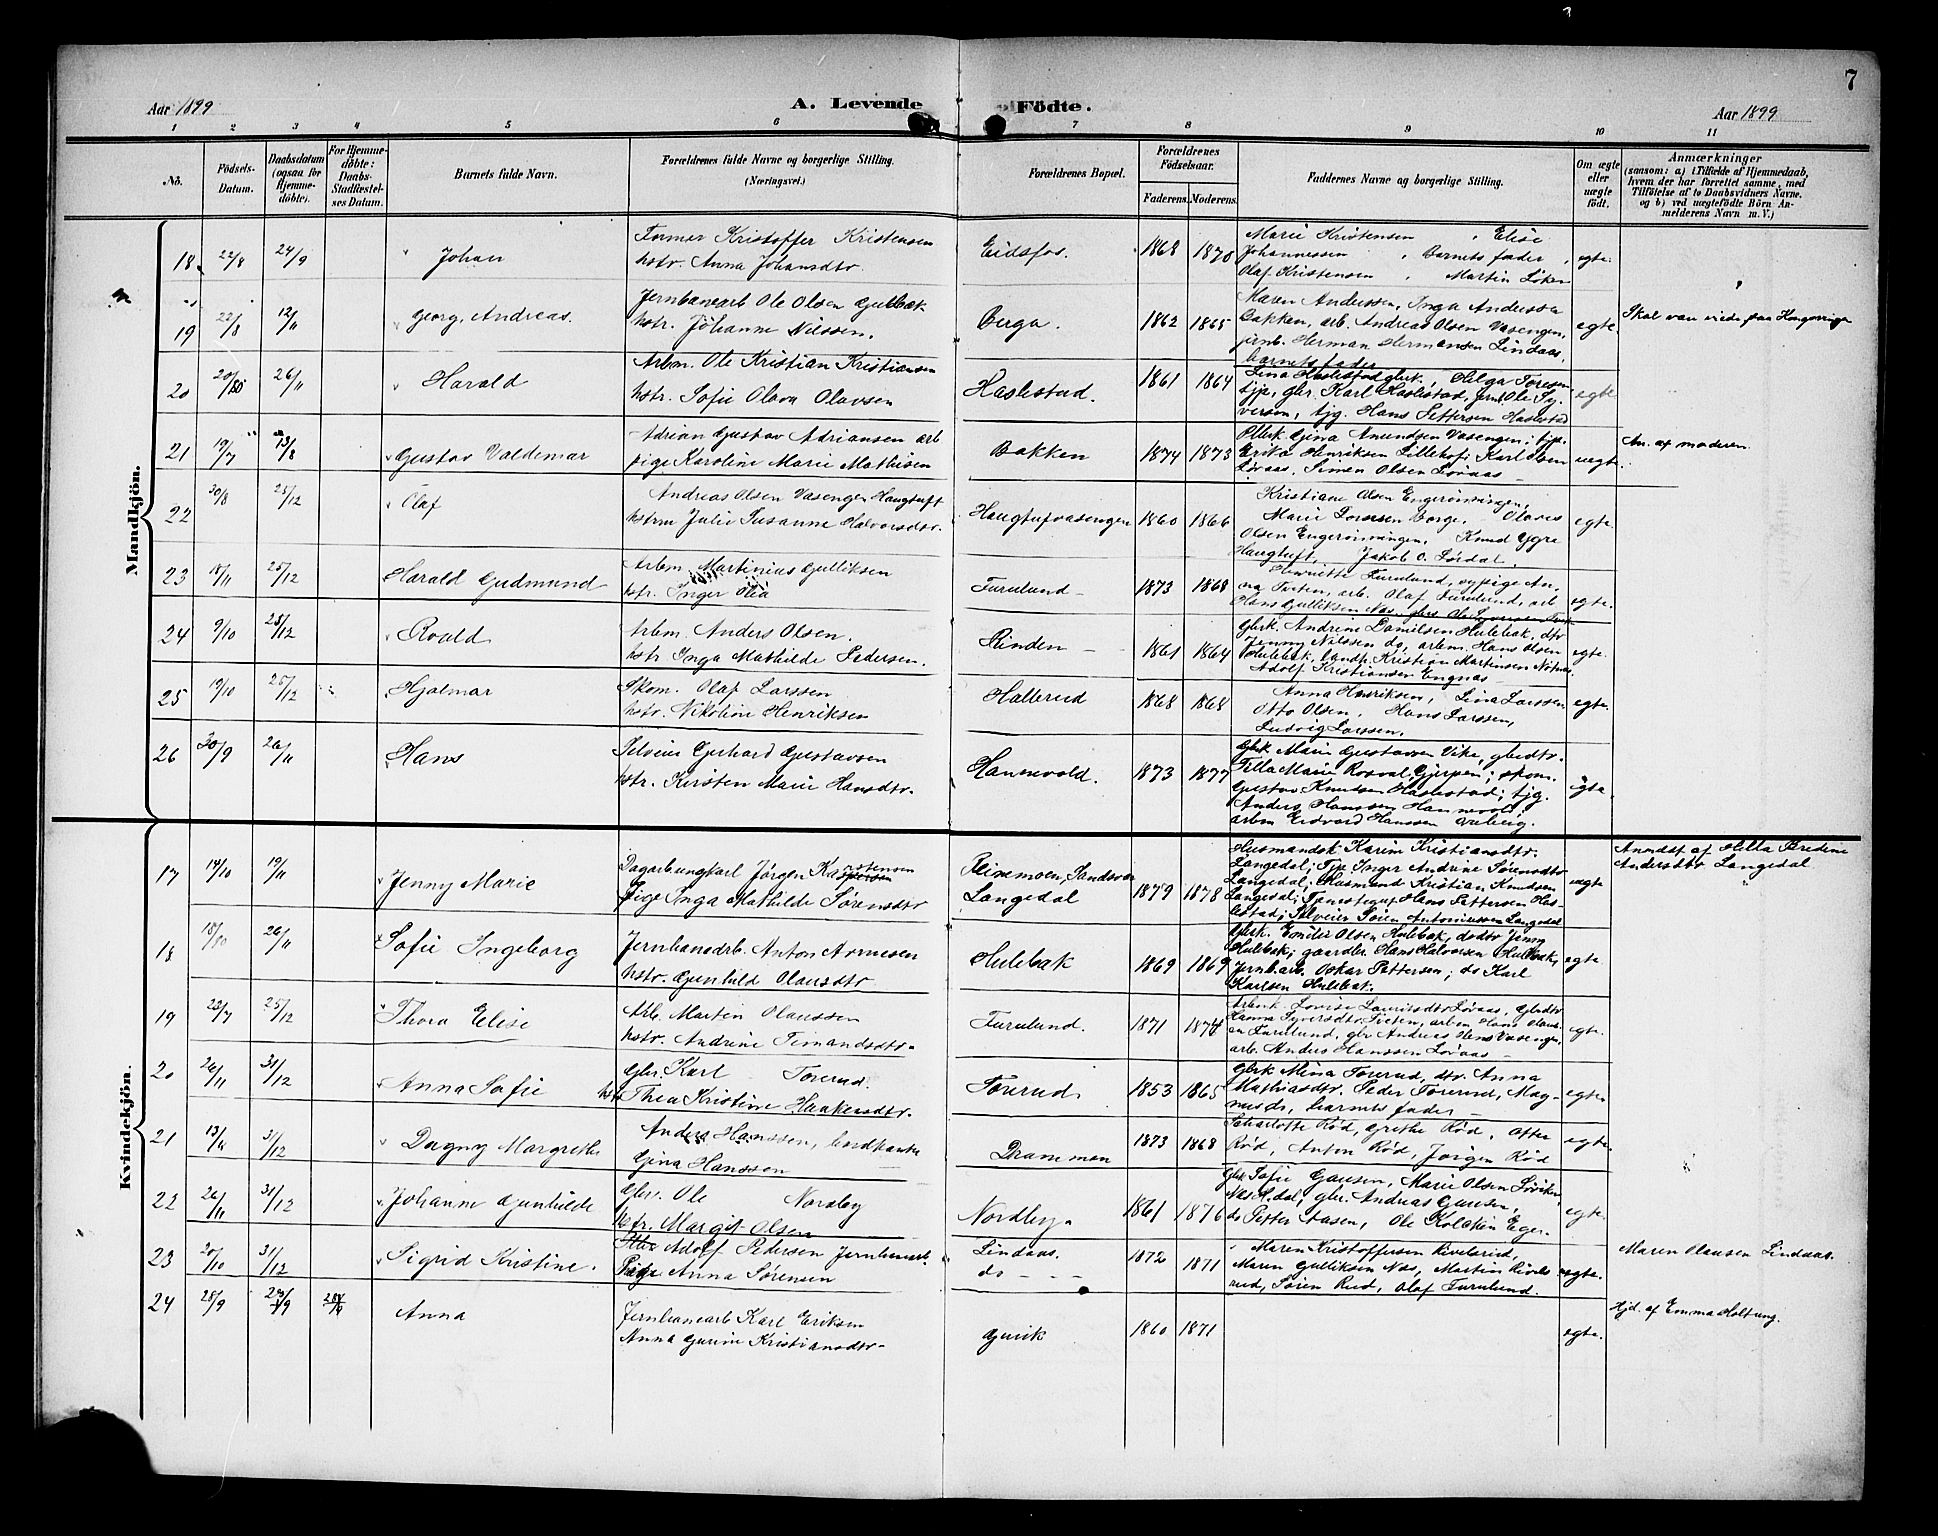 7
Aar 1899
A. Levende Födte.
Aar 1899
1 2 3 4 5 6 7 8 9 10 11
No.
Födsels-Datum.
Daabsdatum (ogsaa for Hjemmedöbte).
For Hjemmedöbte: Daabs-Stadfæstelses Datum.
Barnets fulde Navn.
Forældrenes fulde Navne og borgerlige Stilling.
(Næringsvei.)
Forældrenes Bopæl.
Forældrenes Födselsaar.
Faderens. Moderens.
Faddernes Navne og borgerlige Stilling.
Om ægte eller uægte födt.
Anmærkninger
(saasom: a) i Tilfælde af Hjemmedaab, hvem der har forrettet samme, med Tilföielse af to Daabsvidners Navne. og b) ved uægtefödte Börn Anmelderens Navn m. V.)
Mandkjön.
18 22/8 24/9 Johan
Former Kristoffer Kristensen
hstr. Anna Johansdtr.
Eidsfos. 1868 1870
Marie Kristensen, Elise
Johannessen, Barnets fader,
Olaf Kristensen, Martin Löken
egte.
19 22/8 12/11 Georg. Andreas.
Jernbanearb Ole Olsen Gulbæk
hstr. Johanne Nilssen.
Berga. 1862 1865
Maren Anderssen, Inga Anderssen
Bakken, arb. Andreas Olsen Vasengen,
jernb. Herman Hermansen Lindaas,
barnets fader
egte.
20 26/11 Harald
Arbm. Ole Kristian Kristiansen
hstr. Sofie Olava Olavsen
Haslestad. 1861 1864
Lina Haslestad glerk., Helga Toresen
tjpe, gbr. Karl Haslestad, jernb Ole Sy-
versen, tjg. Hans Pettersen Haslestad
egte.
21 19/7 13/8 Gustav Valdemar
Adrian Gustav Adriansen arb
pige Karoline Marie Mathisen
Bakken 1874 1873
Gina Amundsen Vasengen, tjpe.
Erika Henriksen Lillehof, Karl Olsen
Løvaas, Simen Olsen Løvaas
uegte.
An. af moderen.
22 30/8 25/12 Olaf
Andreas Olsen Vasengen Haugtuft
hstru Julie Susanne Halvorsdtr.
Haugtufvasengen 1860 1866
Kristiane Olsen Engerønningen,
Marie Borge. Olaves
Olsen Engerønningen. Knud
Haugtuft, Jakob O.
egte.
23 18/11 25/12 Harald Gudmund
Arbm. Martinius Gulliksen
hstr. Inger Olia
Furulund 1873 1868
Henriette Furulund, sypige An-
na Tveten, arb. Olaf Furulund, arb
Hans Gulliksen Næs
egte.
24 9/10 28/12 Roald
Arbm. Anders Olsen.
hstr. Inga Mathilde Pedersen.
Rinden 1861 1864
Glerk. Andrine Danielsen Hulebak, dtr
Jenny Nilssen do, arbem. Hans Olsen
Hulebak, landh. Kristian Martinsen
Adolf Kristiansen Engnæs
egte.
25 19/10 25/12 Hjalmar
Skom. Olaf Larssen
hstr. Nikoline Henriksen
Hallerud 1868 1868
Anna Henriksen, Lina Larssen
Otto Olsen, Hans Larssen,
Ludvig Larssen.
egte.
26 30/9 26/11 Hans
Selveier Gerhard Gustavsen
hstr. Kirsten Marie Hansdtr.
Hannevold. 1873 1877
Glerk Marie Gustavsen Vike, gbrdtr.
Tilla Marie Rosval, Gjerpen; skom.
Gustav Knudsen Haslestad; tjg.
Anders Hanssen Hannevold;
arbm Edvard Hanssen
egte
Kvindekjön.
17 14/10 19/11 Jenny Marie
Dagarb ungkarl Jørgen Karstensen
Pige Inga Mathilde Sørensdtr
Reinemoen, Sandsvær
Langedal 1879 1878
Husmandsk Karine Kristiansdtr.
Langedal; Tjp Inger Andrine Sørensdtr
Langedal; Husmand Kristian Knudsen
Langedal; Hans Pettersen Has-
lestad; Selveier Søren Antoniussen Langedal
uegte
Anmeldt af Hilla Bredine
Andersdtr Langedal
18 26/11 Sofie Ingeborg
Jernbanearb. Anton Arnesen
hstr. Gunhild Olausdtr
Hulebak 1869 1869
Glerk. Emilie Olsen Hulebak, do dtr Jenny
Hulebak; gaardbr. Hans Halvorsen Hulebak,
Jernb.arb. Oskar Pettersen; do Karl
Karlsen Hulebak.
egte
19 23/7 25/12 Thora Elise
Arb. Martin Olaussen
hstr. Andrine Timandsdtr.
Furulund. 1871 1874
Arberk. Lovise Lauritsdtr Løvaas, Gbrdtr
Hanna Syversdtr Tveten, arbm Hans Olaus-
en Furulund, gbr Andreas Vasengen
arb. Anders Hanssen Løvaas
egte.
20 26/11 31/12 Anna Sofie
Gbr. Karl Torerud.
hstr Thea Kristine Haakensdtr.
Torerud 1853 1865
Glerk Mina Torerud, dtr. Anna
Mathiasdtr. Peder Torerud, Mag-
nus do, barnets fader
egte
21 13/11 31/12 Dagny Margrethe
Anders Hanssen, landhandl.
Gina Hanssen
Drammen 1873 1868
Scharlotte Rød, Grethe Rød. Otter
Rød, Anton Rød, Jørgen Rød
egte.
22 26/11 31/12 Johanne Gunhilde
Gbr. Ole Nordby
hstr. Margit Olsen
Nordby. 1861 1876
Glerk Sofie Gausen, Marie Olsen
gbr. Andreas Gausen,
do Petter Aasen, Ole Kolækin Eger.
egte.
23 20/10 31/12 Sigrid Kristine.
Adolf Pedersen Jernbanearb.
Pige Anna Sørensen
Lindaas.
do 1872 1871
Maren Kristoffersen Rivelsrud,
Maren Gulliksen Næs, Martin Rivels-
rud, Søren Rud, Olaf Furulund.
uegte.
Maren Olausen Lindaas.
24 28/9 29/9 Anna
Jernbanearb Karl Eriksen
Anna Gurine Kristiansdtr.
Gusik 1860 1871
egte.
Hjd. af Emma Holtung.